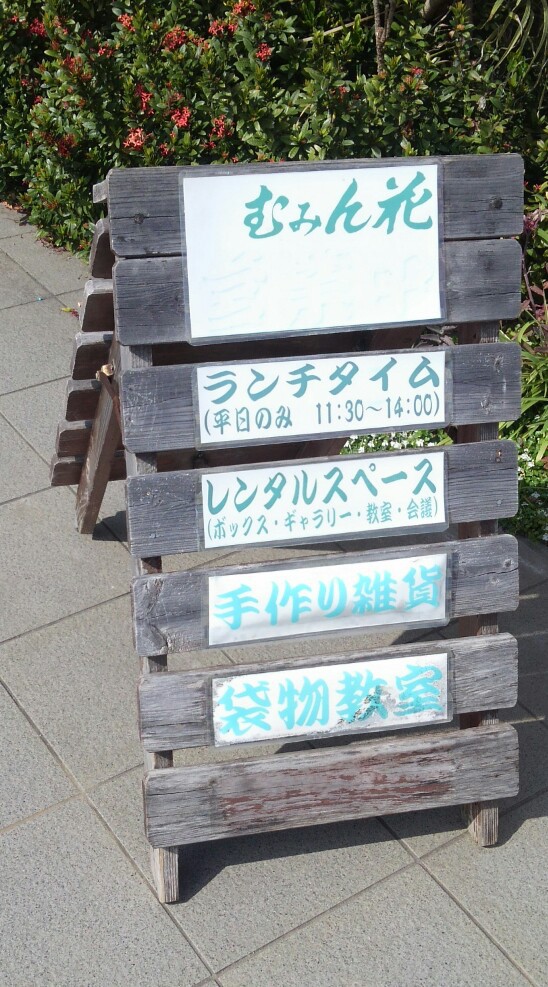 むみん花
ランチタイム
(平日のみ 11:30～14:00)
レンタルスペース
(ボックス・ギャラリー・教室・会議)
手作り雑貨
袋物教室